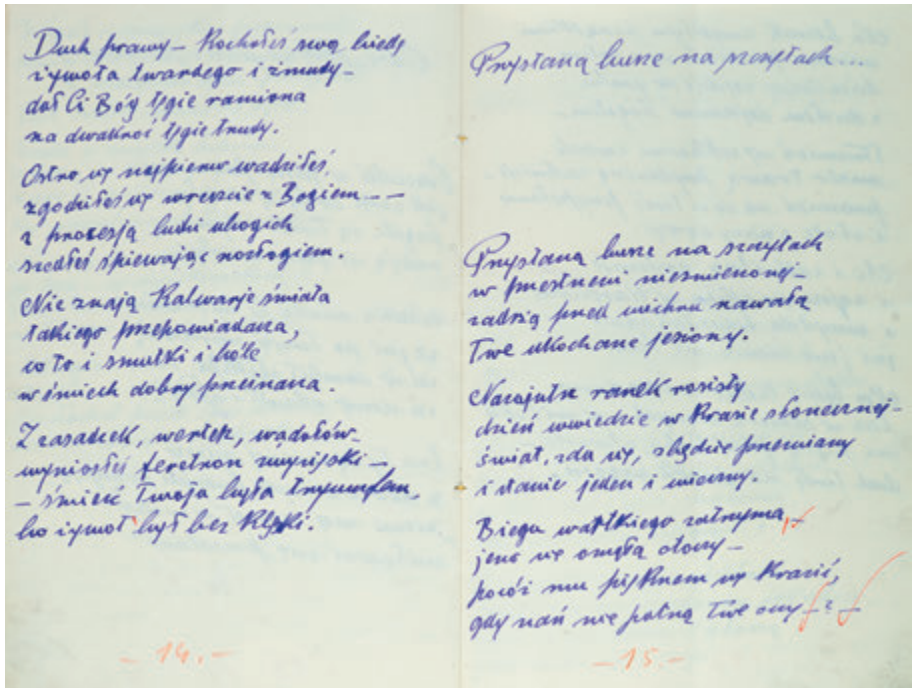 Duch prawy – Kochałeś swą biedę
żywota twardego i żmudy –
dał Ci Bóg tęgie ramiona
na dwakroć tęgie trudy.
Ostro się najpierw wadziłeś,
zgodziłeś się wreszcie z Bogiem – –
z procesją ludzi ubogich
szedłeś śpiewając rozłogiem.
Nie znają Kalwarje świata
takiego przepowiadacza,
co to i smutki i bóle
w śmiech dobry przeinacza.
Z zasadzek, wertep, wądołów –
wyniosłeś feretron zwycięski –
– śmierć Twoja była tryumfem,
bo żywot był bez klęski.
– 14. –
Przystaną burze na szczytach...
Przystaną burze na szczytach
w przestrzeni niezmierzonej –
radzią przed wichru nawałą
Twe ukochane jesiony.
Nazajutrz ranek rosisty
dzień wwiedzie w krasie słonecznej –
świat, zda się, zbędzie przemiany
i stanie jeden i wieczny.
Biegu wartkiego zatrzyma,
jeno się omglą oczy –
pocóż mu pięknem się krasić,
gdy nań nie patrzą Twe oczy – ? –
– 15. –